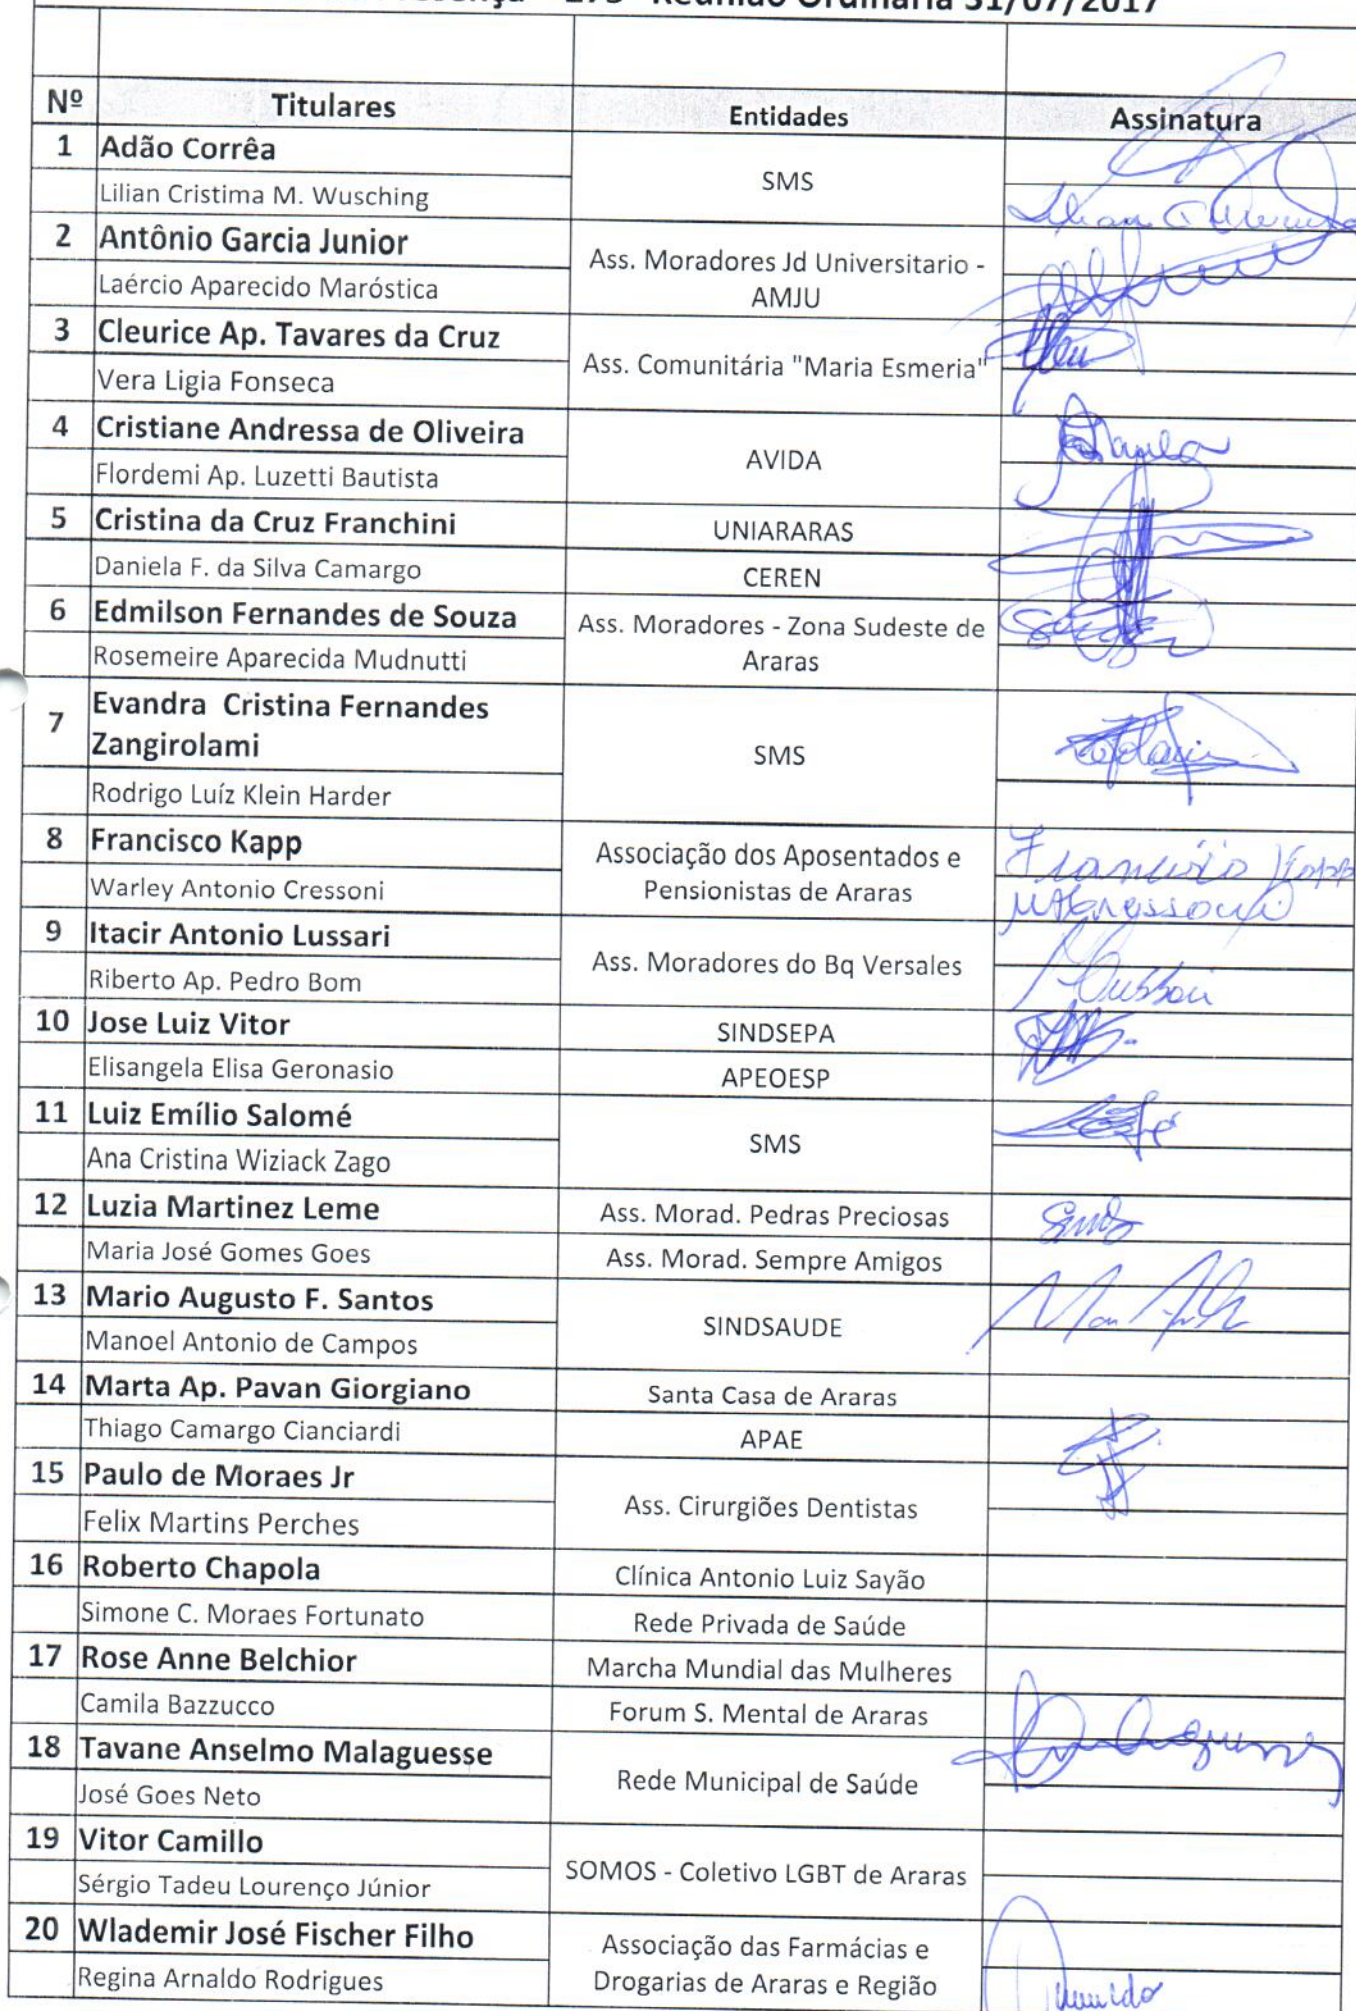 Reunião Ordinária 31/07/2017
Nº Titulares Entidades Assinatura
1 Adão Corrêa
SMS
Lilian Cristima M. Wusching
2 Antônio Garcia Junior
Ass. Moradores Jd Universitario -
AMJU
Laércio Aparecido Maróstica
3 Cleurice Ap. Tavares da Cruz
Ass. Comunitária "Maria Esmeria"
Vera Ligia Fonseca
4 Cristiane Andressa de Oliveira
AVIDA
Flordemi Ap. Luzetti Bautista
5 Cristina da Cruz Franchini UNIARARAS
Daniela F. da Silva Camargo CEREN
6 Edmilson Fernandes de Souza
Ass. Moradores - Zona Sudeste de
Araras
Rosemeire Aparecida Mudnutti
7 Evandra Cristina Fernandes
Zangirolami
SMS
Rodrigo Luíz Klein Harder
8 Francisco Kapp
Associação dos Aposentados e
Pensionistas de Araras
Francisco Kapp
Warley Antonio Cressoni
9 Itacir Antonio Lussari
Ass. Moradores do Bq Versales
Riberto Ap. Pedro Bom
10 Jose Luiz Vitor SINDSEPA
Elisangela Elisa Geronasio APEOESP
11 Luiz Emílio Salomé
SMS
Ana Cristina Wiziack Zago
12 Luzia Martinez Leme Ass. Morad. Pedras Preciosas
Maria José Gomes Goes Ass. Morad. Sempre Amigos
13 Mario Augusto F. Santos
SINDSAUDE
Manoel Antonio de Campos
14 Marta Ap. Pavan Giorgiano Santa Casa de Araras
Thiago Camargo Cianciardi APAE
15 Paulo de Moraes Jr
Ass. Cirurgiões Dentistas
Felix Martins Perches
16 Roberto Chapola Clínica Antonio Luiz Sayão
Simone C. Moraes Fortunato Rede Privada de Saúde
17 Rose Anne Belchior Marcha Mundial das Mulheres
Camila Bazzucco Forum S. Mental de Araras
18 Tavane Anselmo Malaguesse
Rede Municipal de Saúde
José Goes Neto
19 Vitor Camillo
SOMOS - Coletivo LGBT de Araras
Sérgio Tadeu Lourenço Júnior
20 Wlademir José Fischer Filho
Associação das Farmácias e
Drogarias de Araras e Região
Regina Arnaldo Rodrigues